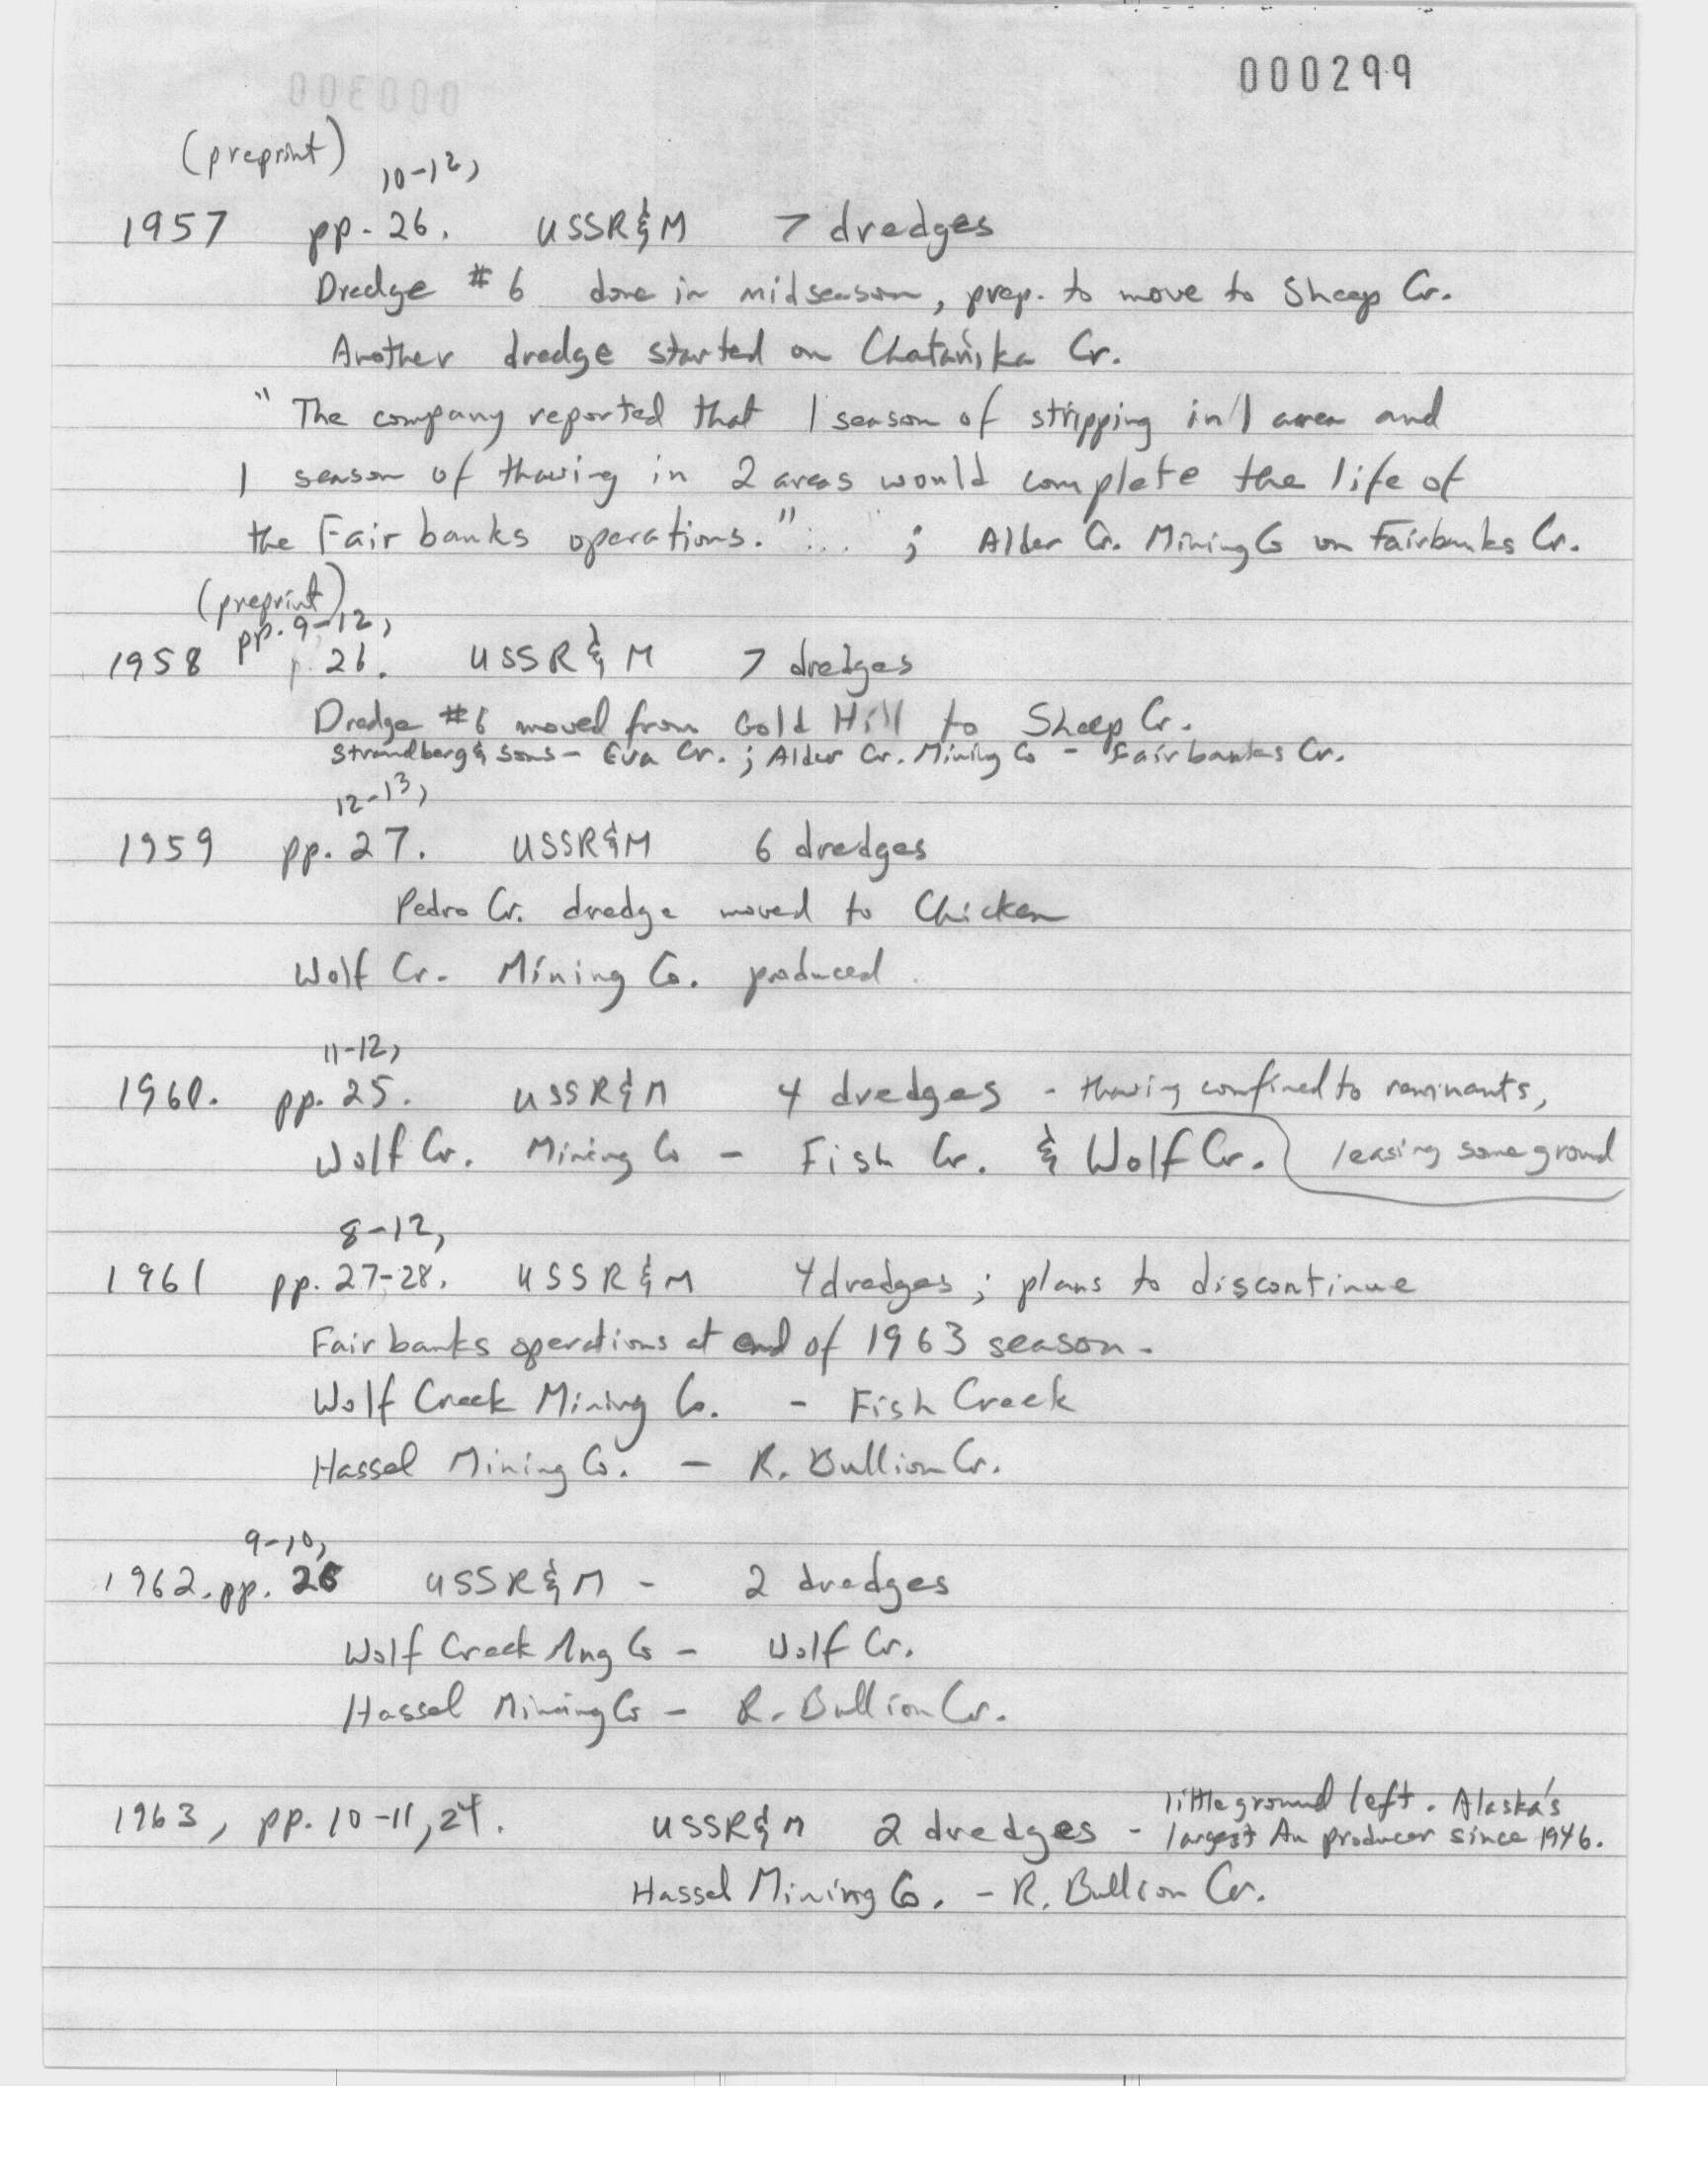 000299
(preprint)
10-12,
1957 pp. 26. USSR&M 7 dredges
Dredge #6 done in midseason, prep. to move to Sheep Cr.
Another dredge started on Chatanika Cr.
"The company reported that 1 season of stripping in 1 area and
1 season of thawing in 2 areas would complete the life of
the Fairbanks operations."... ; Alder Cr. Mining Co on Fairbanks Cr.
(preprint)
pp. 9-12,
1958 p. 26. USSR&M 7 dredges
Dredge #6 moved from Gold Hill to Sheep Cr.
Strandberg & Sons - Eva Cr. ; Alder Cr. Mining Co - Fairbanks Cr.
12-13,
1959 pp. 27. USSR&M 6 dredges
Pedro Cr. dredge moved to Chicken
Wolf Cr. Mining Co. produced
11-12,
1960. pp. 25. USSR&M 4 dredges - thawing confined to remnants,
Wolf Cr. Mining Co - Fish Cr. & Wolf Cr. leasing some ground
8-12,
1961 pp. 27-28. USSR&M 4 dredges ; plans to discontinue
Fairbanks operations at end of 1963 season.
Wolf Creek Mining Co. - Fish Creek
Hassel Mining Co. - R. Bullion Cr.
9-10,
1962. pp. 26 USSR&M - 2 dredges
Wolf Creek Mng Co - Wolf Cr.
Hassel Mining Co - R. Bullion Cr.
little ground left. Alaska's
1963, pp. 10-11, 24. USSR&M 2 dredges - largest Au producer since 1946.
Hassel Mining Co. - R. Bullion Cr.